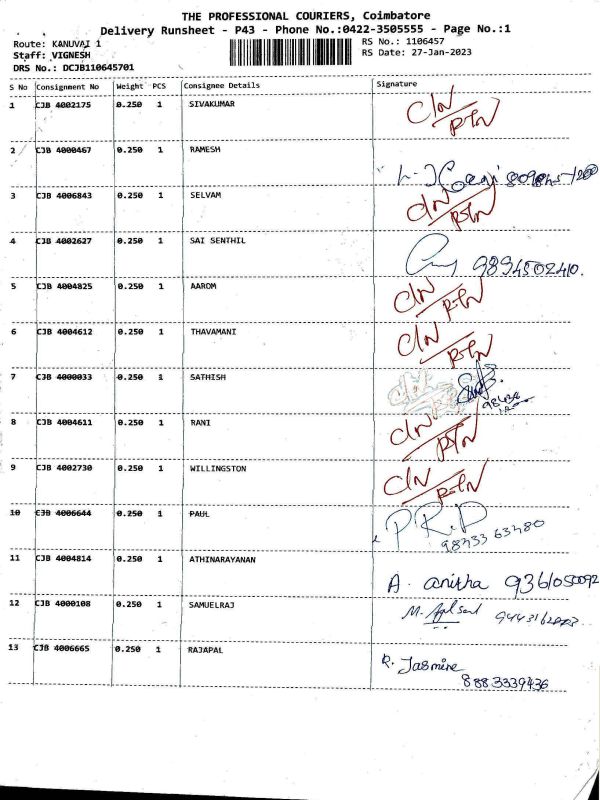 THE PROFESSIONAL COURIERS, Coimbatore
Delivery Runsheet - P43 - Phone No.:0422-3505555 - Page No.:1
Route: KANUVAI 1
RS No.: 1106457
Staff: VIGNESH
RS Date: 27-Jan-2023
DRS No.: DCJB110645701
S No Consignment No Weight PCS Consignee Details Signature
1 CJB 4002175 0.250 1 SIVAKUMAR C/N RTN
2 CJB 4000467 0.250 1 RAMESH
3 CJB 4006843 0.250 1 SELVAM C/N RTN
4 CJB 4002627 0.250 1 SAI SENTHIL 9894502410.
5 CJB 4004825 0.250 1 AAROM C/N RTN
6 CJB 4004612 0.250 1 THAVAMANI C/N RTN
7 CJB 4000033 0.250 1 SATHISH
8 CJB 4004611 0.250 1 RANI C/N RTN
9 CJB 4002730 0.250 1 WILLINGSTON C/N RTN
10 CJB 4006644 0.250 1 PAUL
11 CJB 4004814 0.250 1 ATHINARAYANAN A. anitha 9361050092
12 CJB 4000108 0.250 1 SAMUELRAJ
13 CJB 4006665 0.250 1 RAJAPAL R. Jasmine
8883339436